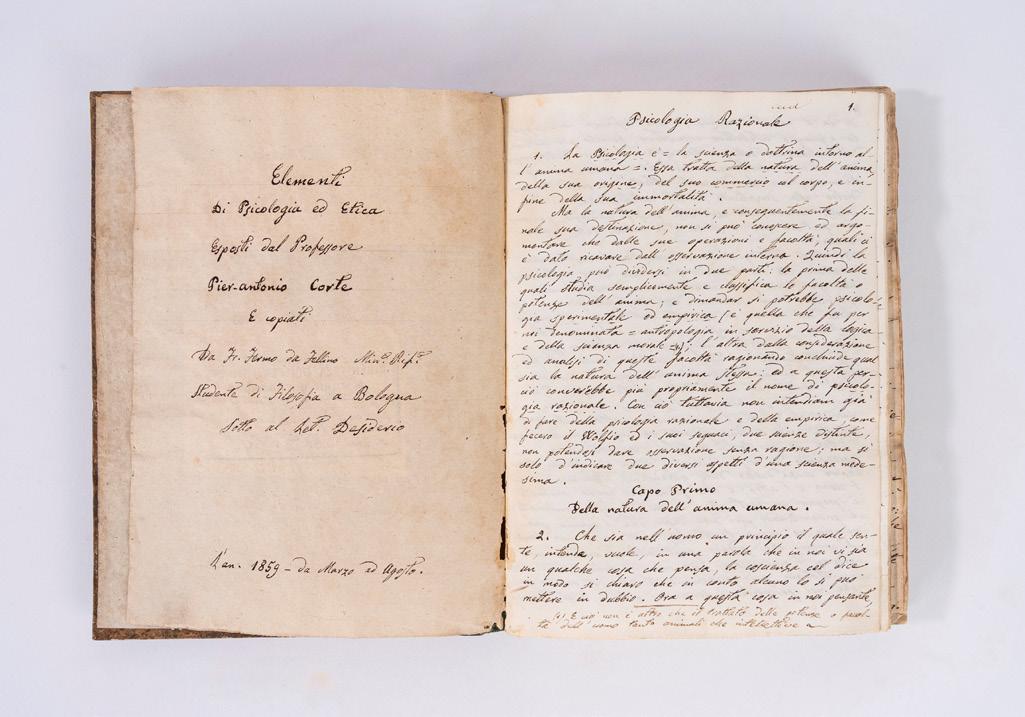 Elementi
Di Psicologia ed Etica
Esposti dal Professore
Pier-antonio Corte
E copiati
Da Fr. Fermo da Fellino Min. Rif.
Studente di Filosofia a Bologna
Sotto al Let. Desiderio
L'an. 1859 - da Marzo ad Agosto.
1.
Psicologia Razionale
1. La Psicologia è = la scienza o dottrina intorno al-
l'anima umana =. Essa tratta della natura dell'anima,
della sua origine, del suo commercio col corpo, e in-
fine della sua immortalità.
Ma la natura dell'anima, e conseguentemente la fi-
nale sua destinazione, non si può conoscere ed argo-
mentare che dalle sue operazioni e facoltà, quali ci
è dato ricavare dall'osservazione interna. Quindi la
psicologia può dividersi in due parti: la prima delle
quali studia semplicemente e classifica le facoltà o
potenze dell'anima; e dimandar si potrebbe psicolo-
gia sperimentale od empirica (e quella che fu per
noi denominata = antropologia in servizio della logica
e della scienza morale =); l'altra dalla considerazione
ed analisi di queste facoltà ragionando conclude qual
sia la natura dell'anima stessa: ed a questa per-
ciò converrebbe più propriamente il nome di psicolo-
gia razionale. Con ciò tuttavia non intendiam già
di fare della psicologia razionale e della empirica come
fecero il Wolfio ed i suoi seguaci, due scienze distinte,
non potendosi dare osservazione senza ragione; ma sì
solo d'indicare due diversi aspetti d'una scienza mede-
sima.
Capo Primo
Della natura dell'anima umana.
2. Che sia nell'uomo un principio il quale sen-
te, intenda, vuole, in una parola che in noi vi sia
un qualche cosa che pensa, la coscienza cel dice
in modo sì chiaro che in conto alcuno lo si può
mettere in dubbio. Ora a questa cosa in noi pensante,
(1) E ciò non è altro che il trattato delle potenze o facol-
tà dell'uomo tanto animali che intellettive